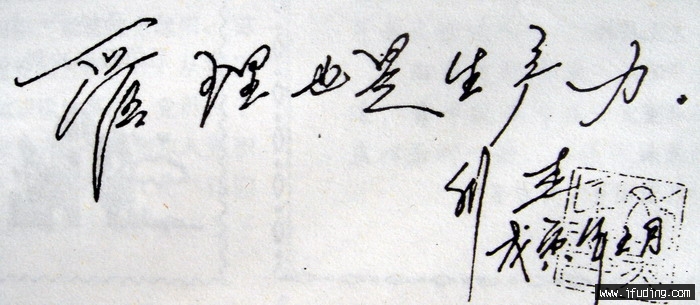 管理也是生产力。
刘
戊寅年五月
www.ifuding.com